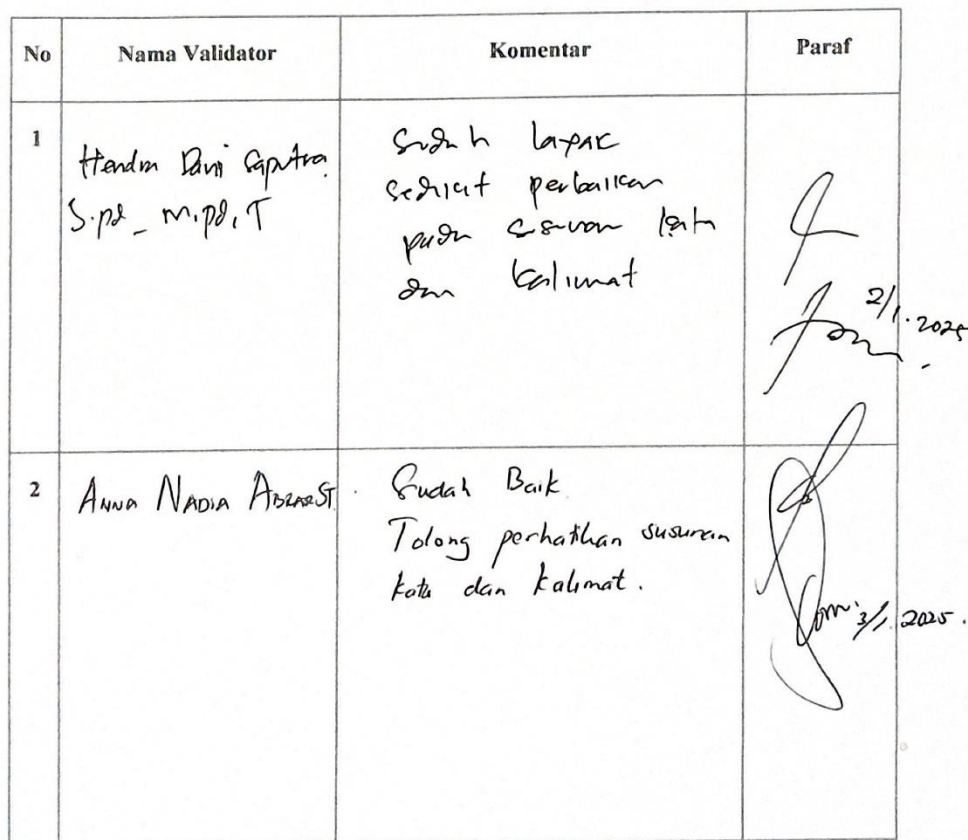 No
Nama Validator
Komentar
Paraf
1
Hendra Dani Saputra
S.pd_ M.pd.T
Sudah layak
sedikit perbaikan
pada susunan kata
dan kalimat
2/1.2025
2
ANNA NADIA ABRAR ST.
Sudah Baik
Tolong perhatikan susunan
kata dan kalimat.
3/1.2025.